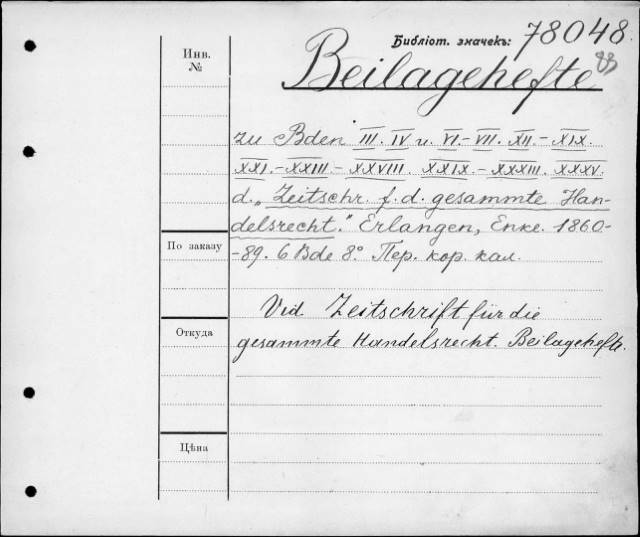 Инв.
№
Библіот. значекъ: 78048.
83
Beilagehefte
zu Bden III. IV u. VI.-VII. XII.-XIX.
XXI.-XXIII.-XXVIII. XXIX.-XXXIII. XXXV.
d. „Zeitschr. f. d. gesammte Han-
delsrecht." Erlangen, Enke. 1860-
-89. 6 Bde 8° Пер. кор. кал.
По заказу
Vid. Zeitschrift für die
Откуда
gesammte Handelsrecht. Beilagehefte.
Цѣна